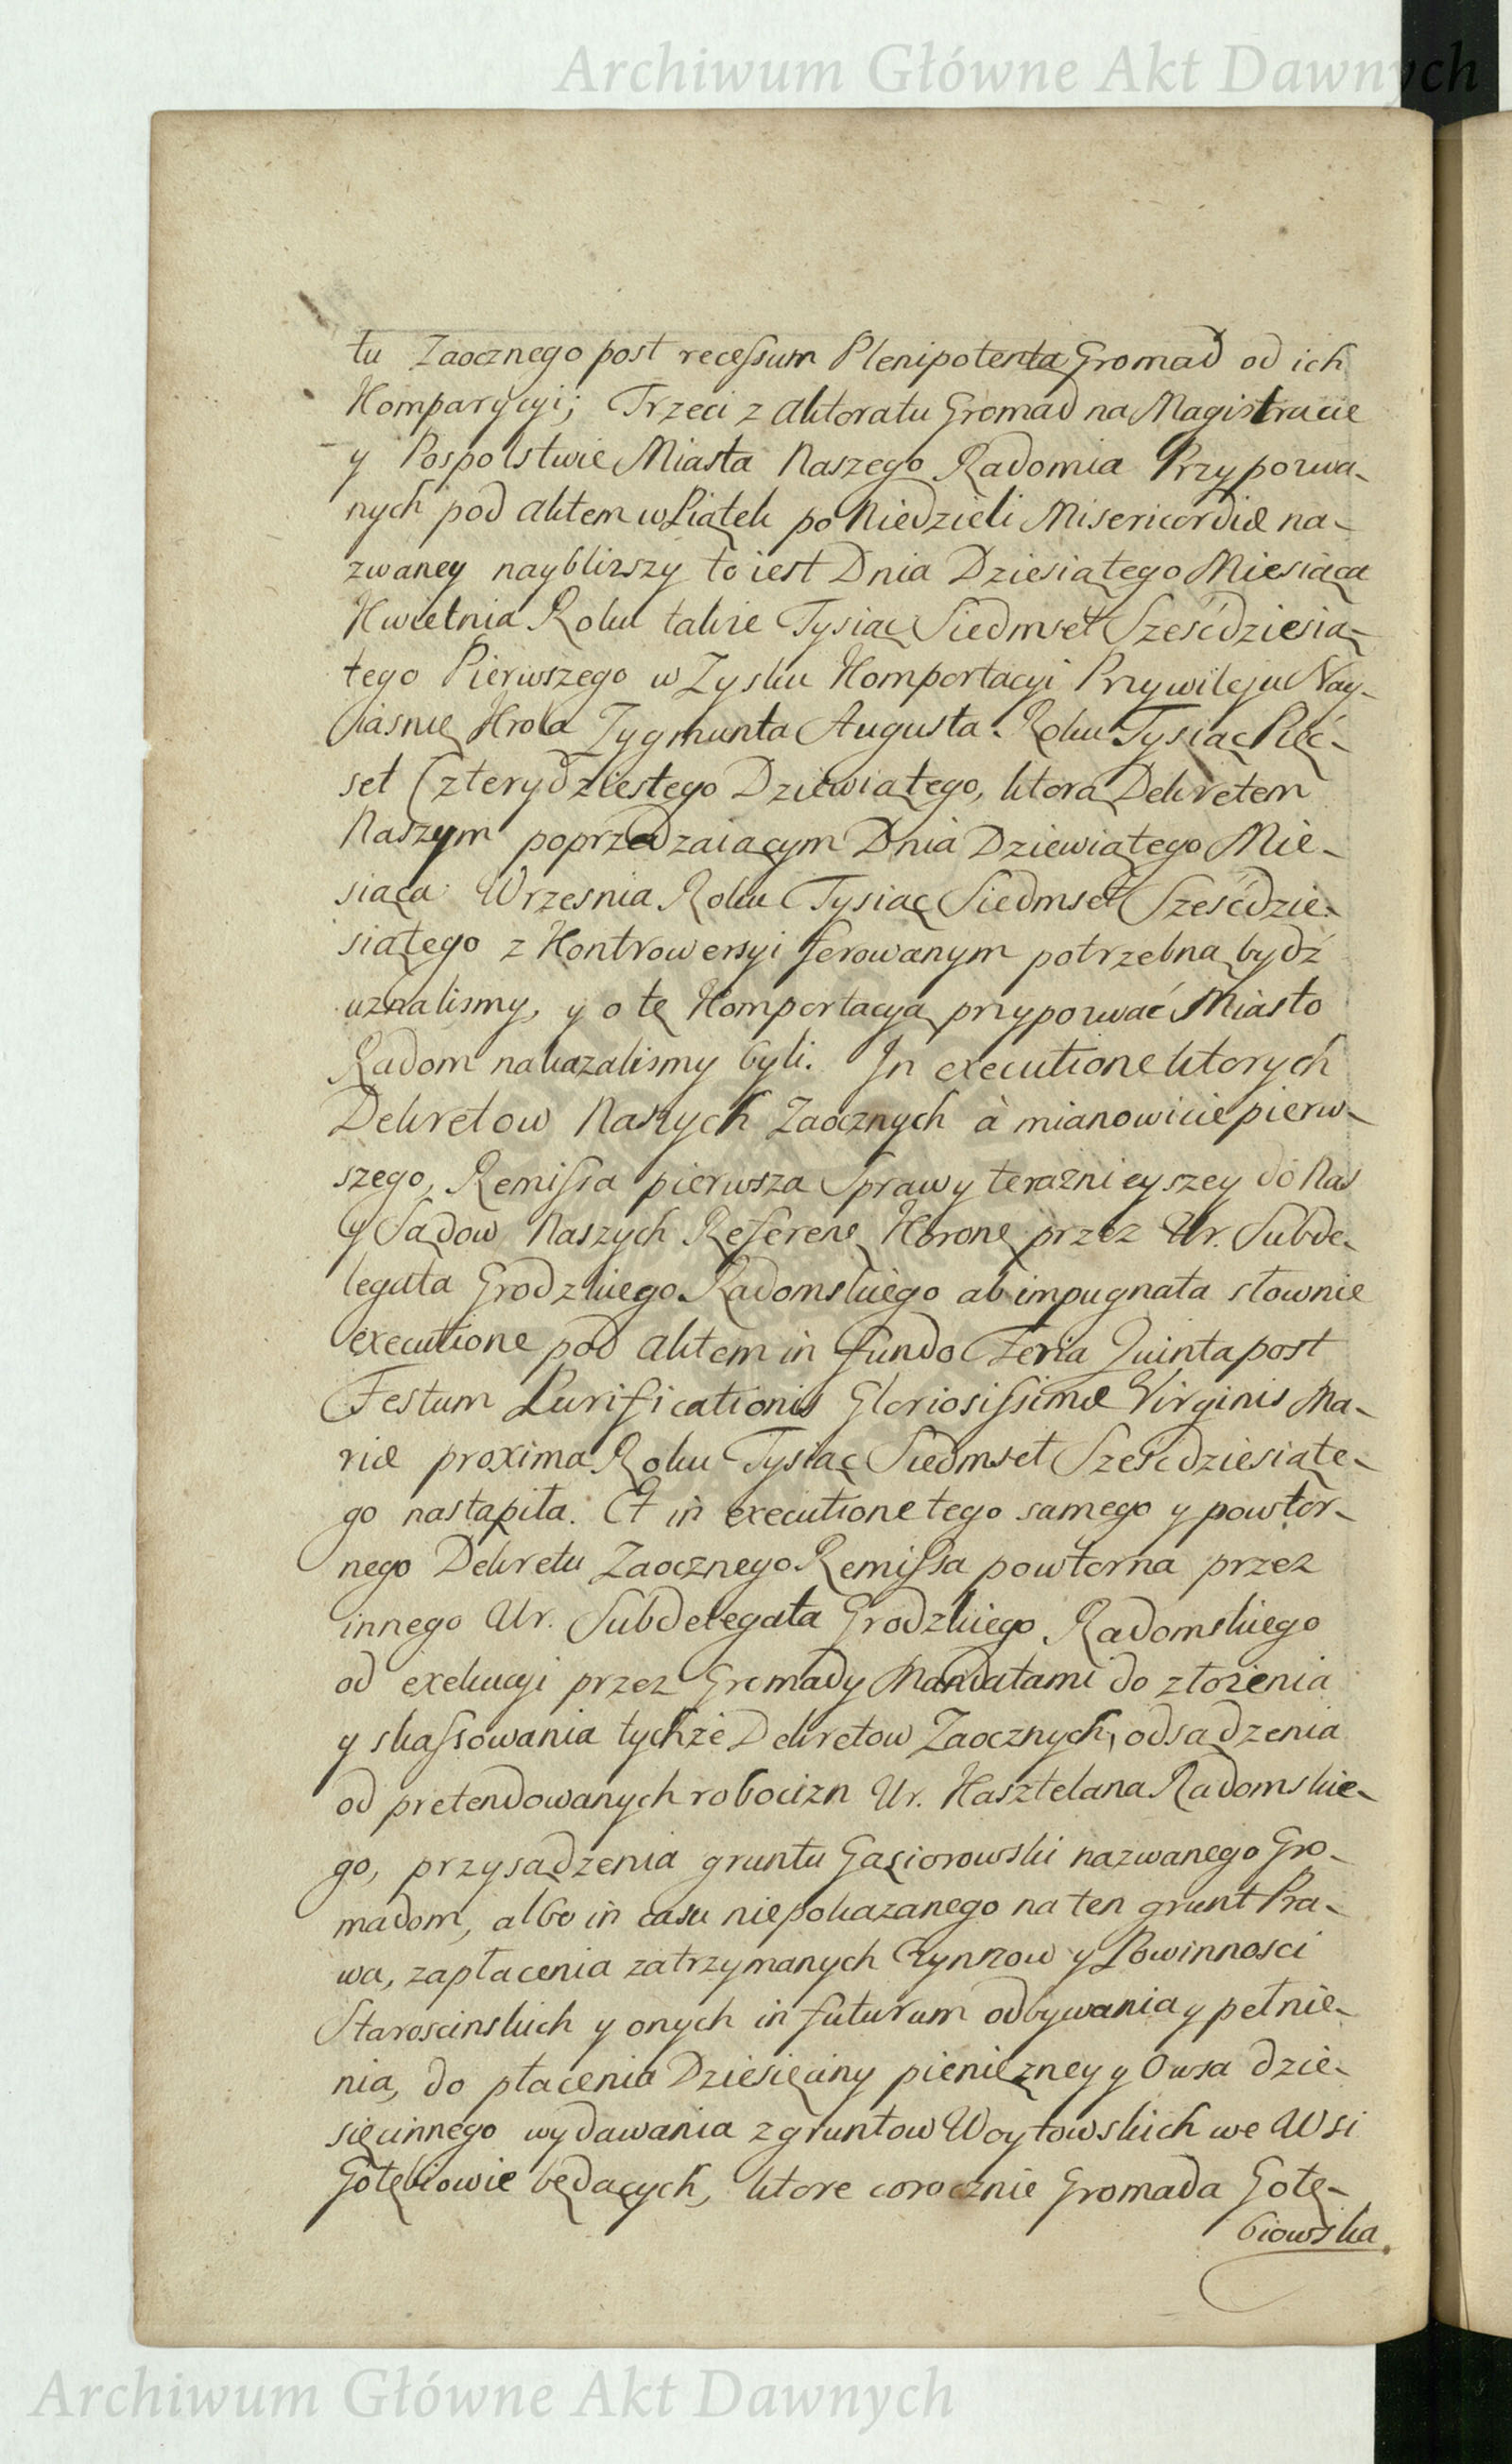 Archiwum Główne Akt Dawnych
tu Zaocznego post recessum Plenipotenta Gromad od ich
Komparycyi; Trzeci z aktoratu Gromad na Magistracie
y Pospolstwie Miasta Naszego Radomia Przypozwa-
nych pod aktem w Piątek po Niedzieli Misericordiæ na-
zwaney nayblizszy to iest Dnia Dziesiątego Miesiąca
Kwietnia Roku takze Tysiąc Siedmset Sześćdziesią-
tego Pierwszego w Zysku Komportacyi Przywileju Nay-
iasnię Krola Zygmunta Augusta Roku Tysiąc Pięć-
set Czterydziestego Dziewiątego, ktorą Dekretem
Naszym poprzedzaiącym Dnia Dziewiątego Mie-
siąca Wrzesnia Roku Tysiąc Siedmset Sześćdzie-
siątego z Kontrowersyi ferowanym potrzebną bydź
uznalismy, y o tę Komportacyą przypozwać Miasto
Radom nakazalismy byli. In executione ktorych
Dekretow Naszych Zaocznych à mianowicie pierw-
szego, Remissa pierwsza Sprawy teraznieyszey do Nas
y Sądow Naszych Referen. Koron. przez Ur. Subde-
legata Grodzkiego Radomskiego ab impugnata słownie
executione pod aktem in fundo Feria Quinta post
Festum Purificationis Gloriosissimæ Virginis Ma-
riæ proxima Roku Tysiąc Siedmset Sześcdziesiąte-
go nastąpiła. Et in executione tego samego y powtor-
nego Dekretu Zaocznego Remissa powtorna przez
innego Ur. Subdelegata Grodzkiego Radomskiego
od exekucyi przez Gromady Mandatami do złożenia
y skassowania tychże Dekretow Zaocznych, odsądzenia
od pretendowanych robocizn Ur. Kasztelana Radomskie-
go, przysądzenia gruntu Gąsiorowski nazwanego Gro-
madom, albo in casu niepokazanego na ten grunt Pra-
wa, zapłacenia zatrzymanych Czynszow y Powinnosci
Staroscinskich y onych in futurum odbywania y pełnie-
nia, do płacenia Dziesięciny pieniężney y Owsa dzie-
sięcinnego wydawania z gruntow Woytowskich we Wsi
Gołębiowie będących, ktore corocznie Gromada Gołę-
biowska.
Archiwum Główne Akt Dawnych